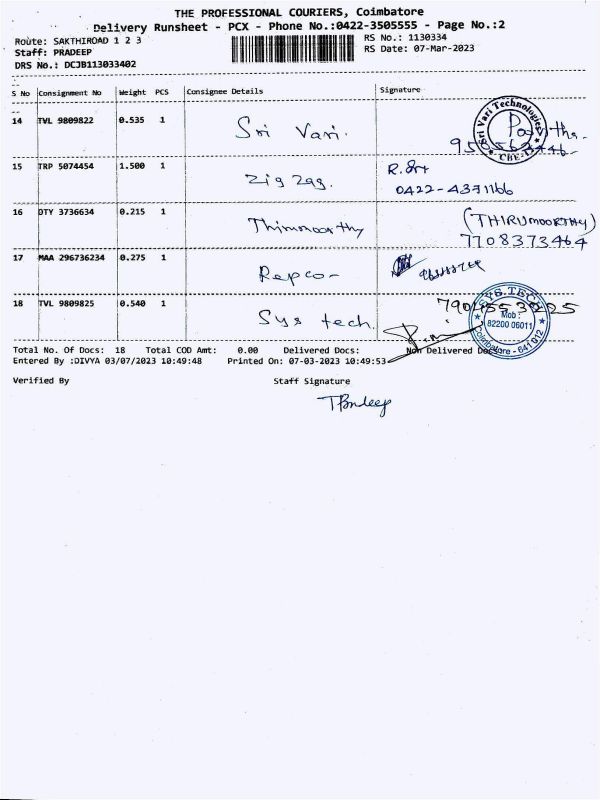 THE PROFESSIONAL COURIERS, Coimbatore
Delivery Runsheet - PCX - Phone No.:0422-3505555 - Page No.:2
Route: SAKTHIROAD 1 2 3
RS No.: 1130334
Staff: PRADEEP
RS Date: 07-Mar-2023
DRS No.: DCJB113033402
S No Consignment No Weight PCS Consignee Details Signature
14 TVL 9809822 0.535 1 Sri Vari.
Sri Vari Technologies
CBE
15 TRP 5074454 1.500 1 Zig Zag.
0422-4371166
16 DTY 3736634 0.215 1 Thirumoorthy (THIRUMOORTHY)
7708373464
17 MAA 296736234 0.275 1 Repco-
18 TVL 9809825 0.540 1 Sys tech.
SYS.TECH
Mob :
82200 06011
Coimbatore - 641 012
Total No. Of Docs: 18 Total COD Amt: 0.00 Delivered Docs: Non Delivered Docs:
Entered By :DIVYA 03/07/2023 10:49:48 Printed On: 07-03-2023 10:49:53
Verified By Staff Signature